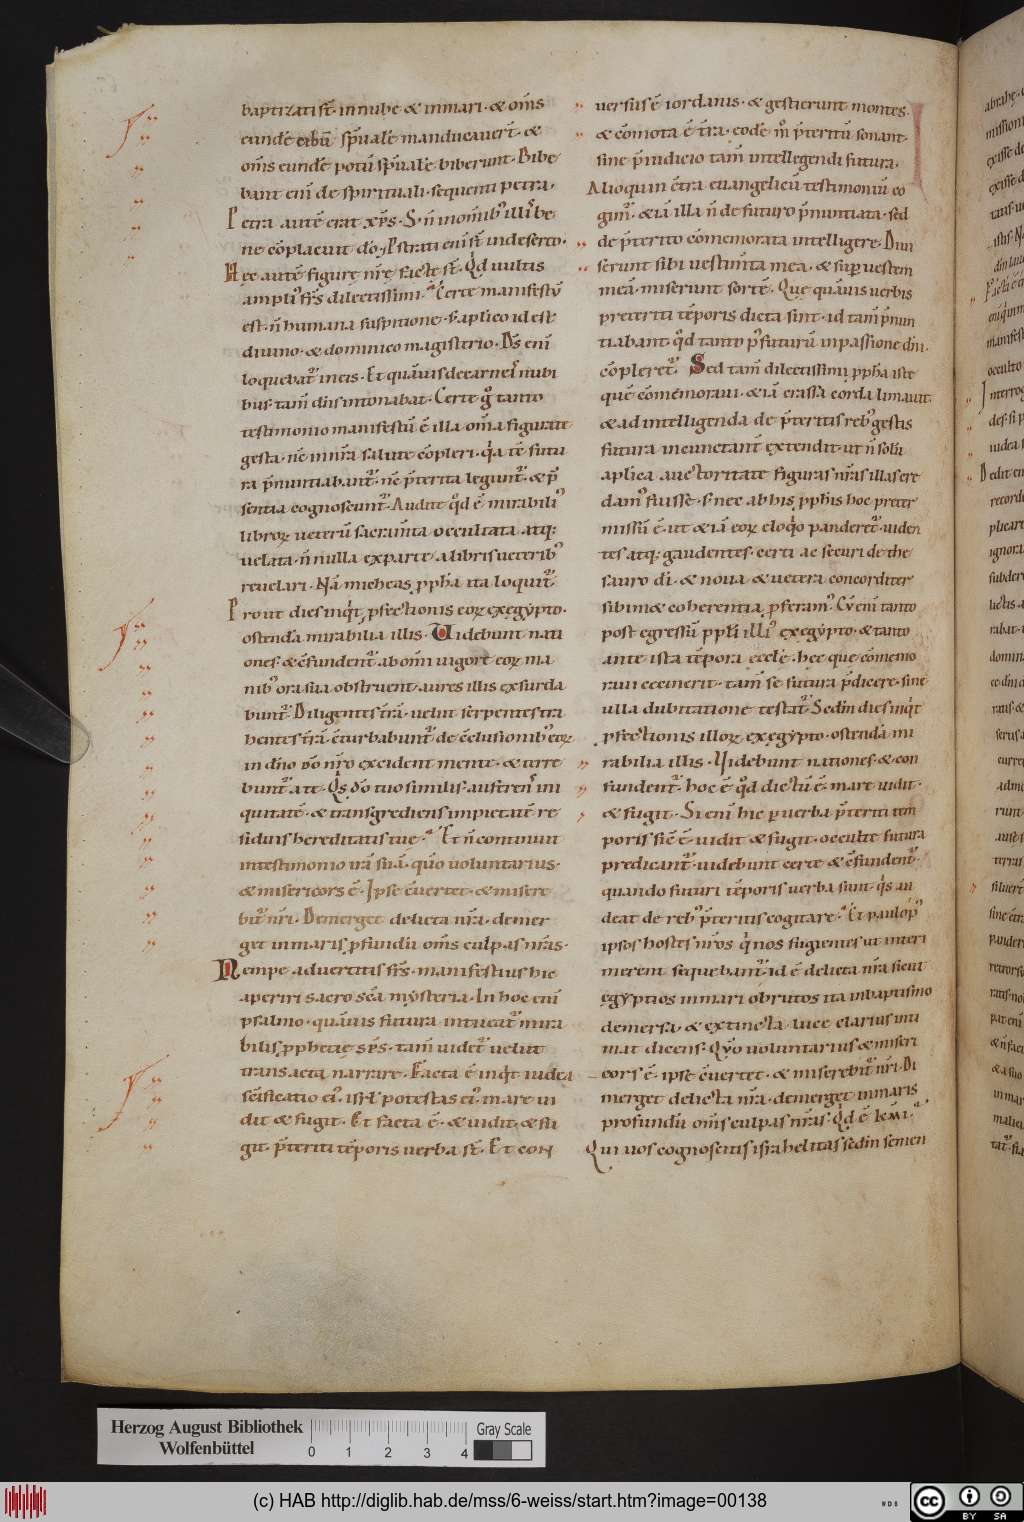 baptizati st̄ · in nube & in mari · & om̄s
eundē cibū sp̄ualē manducauer̄t · &
om̄s eundē potū sp̄ualē biberunt · Bibe
bant eni᷎ de spirituali · sequenti petra,
Petra autē erat xp̄s · S · n̄ in om̄ib; illi᷎ be
ne cōplacuit dō · Pstrati eni᷎ st̄ in deserto ·
Hęc autē figurę nr̄ę factę st̄ · Qd̄ uultis
ampli᷎ fr̄s dilectissimi · Certe manifestū
est · n̄ humana suspitione · s; aplico id est
diuino · & dominico magisterio · Ds̄ eni᷎
loquebat᷎ in eis · Et quāuis de carnei᷎ nubi
bus · tam̄ dn̄s intonabat · Certe g̊ tanto
testimonio manifestū ē illa om̄a figurate
gesta · nē in nr̄a salute cōpleri · q̇a tē futu
ra p̄nuntiabant᷎ · nē p̄terita legunt᷎ · & p̄
sentia cognoscunt᷎ · Audite qd̄ ē mirabili᷎
libroꝝ ueterū sacram̄ta occultata atq;
uelata · n̄ nulla ex parte a libris ueterib᷎
reuelari · Nā micheas ppha ita loquit᷎
Prout dies inqt pfectionis eoꝝ ex egypto ·
ostendā mirabilia illis · Uidebunt nati
ones · & cfundent᷎ ab om̄i uigore eoꝝ ma
nib᷎ ora sua obstruent · aures illis exsurda
bunt᷎ · Diligentes trā · uelut serpentes tra
hentes trā · cturbabunt᷎ de cclusionib᷎ eoꝝ
in dn̄o dō nr̄o excident mente · & terre
bunt᷎ a te · Qs dō tuo similis · auferen᷎ ini
quitatē · & transgrediens impietatē re
siduis hereditatis tuę · Et n̄ continuit
in testimonio irā suā · qm̄o uoluntarius ·
& misericors ē · Ipse cuertet · & misere
bit᷎ nr̄i · Demerget delicta nr̄a · demer
get in maris pfundū om̄s culpas nr̄as ·
Nempe aduertitis fr̄s · manifestius hic
aperiri sacro scā mysteria · In hoc eni᷎
psalmo · quāuis futura intueat᷎ mira
bilis pphetię sp̄s · tam̄ uidet᷎ uelut
transacta narrare · Facta ē inqt iudea
sc̄ificatio ei᷎ · isrl̄ potestas ei᷎ · mare ui
dit & fugit · Et facta ē · & uidit · & fu
git · p̄teriti tēporis uerba st̄ · Et con
uersus ē iordanis · & gestierunt montes ·
& cōmota ē tr̄a · eodē m̊ p̄teritū sonant ·
sine p̄iudicio tam̄ intellegendi futura,
Alioquin ctra euangelicū testimoniū co
gim᷎ · & iā illa n̄ de futuro p̄nuntiata · sed
de p̄terito cōmemorata intelligere · Diui
serunt sibi uestim̄ta mea · & sup uestem
meā · miserunt sortē · Que quāuis uerbis
preteriti tēporis dicta sint · id tam̄ p̄nun
tiabant · qd̄ tanto p᷎ futurū in passione dn̄i ·
cōpleret᷎ · Sed tam̄ dilectissimi ppha iste
quē cōmemoraui · & iā crassa corda limauit ·
& ad intelligenda de p̄teritis reb᷎ gestis
futura incunctant̄ extendit · ut n̄ solū
aplica auctoritate figuras nr̄as illas cre
dam᷎ fuisse · s; nec ab his pphis hoc preter
missū ē · ut & iā eoꝝ eloqio panderet᷎ · uiden
tes atq; gaudentes · certi ac securi de the
sauro di᷎ · & noua & uetera concorditer
sibimet coherentia pferam᷎ · Cū eni᷎ tanto
post egressū ppli illi᷎ ex egypto · & tanto
ante ista tēpora ęcclę · hęc que cōmemo
raui cecinerit · tam̄ se futura p̄dicere · sine
ulla dubitatione testat᷎ · Sedm dies inqt
pfectionis illoꝝ ex egypto · ostendā mi
rabilia illis · Uidebunt nationes · & con
fundent᷎ · hoc ē qd̄ dictū ē · mare uidit ·
& fugit · Si eni᷎ hic p uerba p̄teriti tem
poris sic ē · uidit & fugit · occulte futura
predicant᷎ · uidebunt certe & cfundent᷎ ·
quando futuri tēporis uerba sunt · qs au
deat de reb᷎ p̄teritis cogitare · Et paulop᷎
ipsos hostes nr̄os · q nos fugientes ut interi
merent sequebant᷎ · id ē delicta nr̄a sicut
ęgyptios in mari obrutos ita in baptismo
demersa · & extincta · luce clarius inti
mat dicens · Qm̄o uoluntarius & miseri
cors ē · ipse cuertet · & miserebit᷎ nr̄i · Di
merget delicta nr̄a · demerget in maris
profundū om̄s culpas nr̄as · Qd̄ ē kmi ·
Qui uos cognoscitis israhelitas sedm semen
Herzog August Bibliothek
Wolfenbüttel
0 1 2 3 4
Gray Scale
(c) HAB http://diglib.hab.de/mss/6-weiss/start.htm?image=00138
WDB
cc BY SA